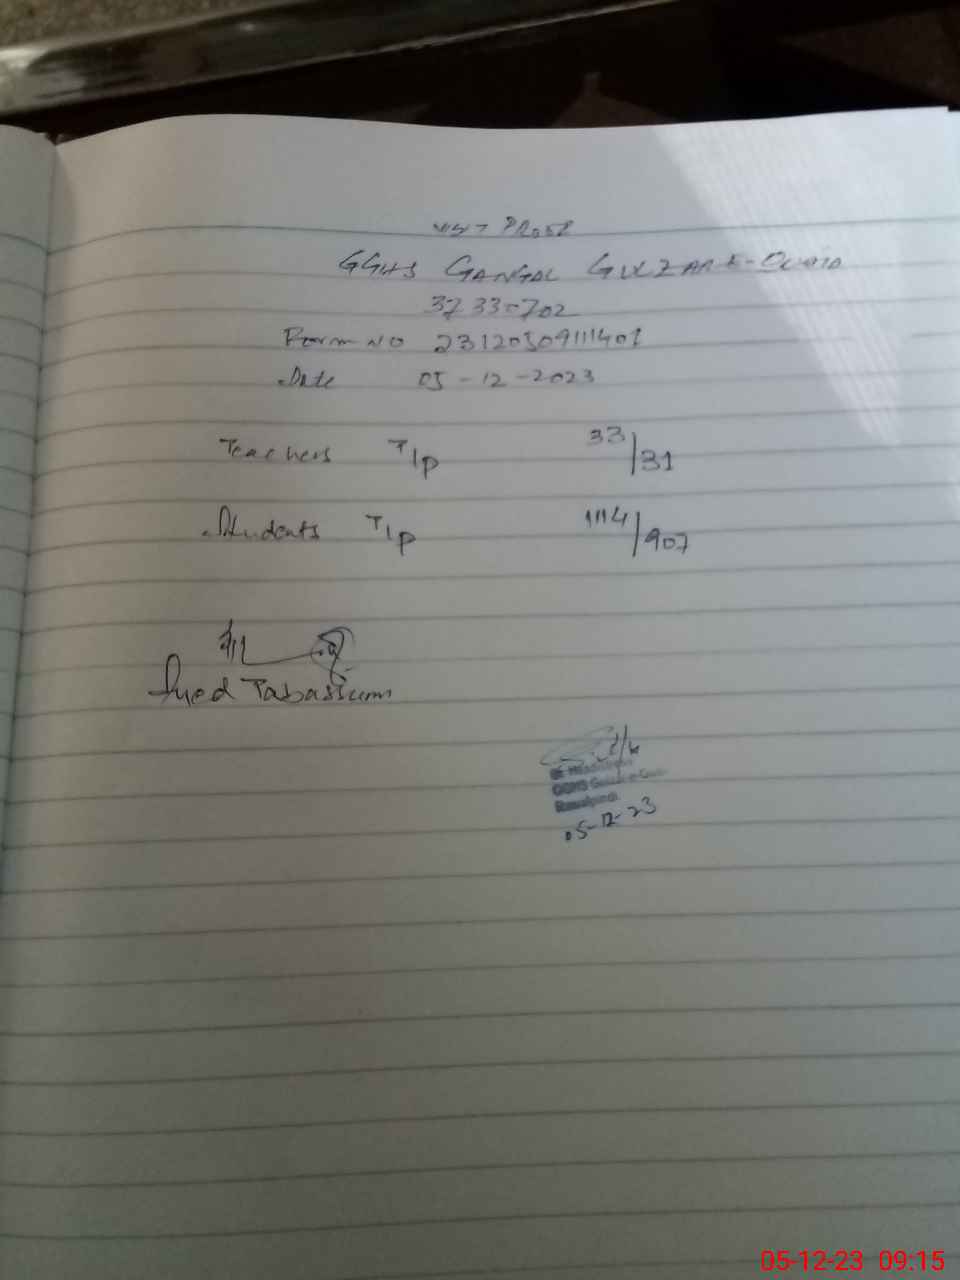 VISIT PROOF
GGHS GANGAL GULZAR-E-QUAID
37330702
Form NO 23120509111401
Date 05-12-2023
Teachers T/P 33/31
Students T/P 1114/907
Syed Tabassum
GGHS
Rawalpindi
05-12-23
05-12-23 09:15